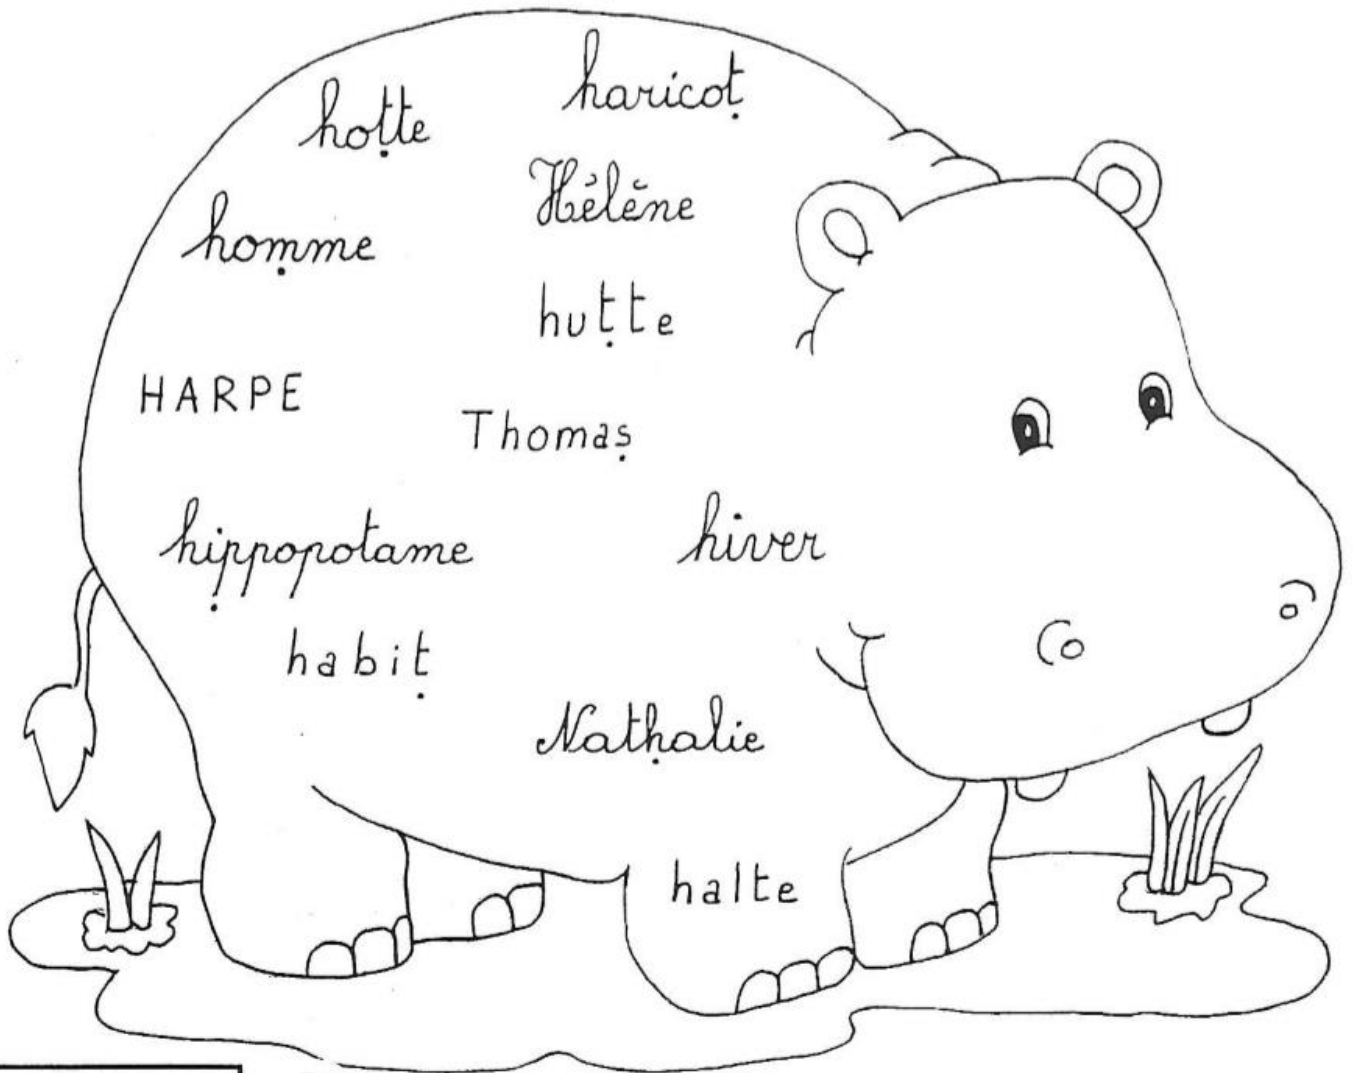 haricot
hotte
Hélène
homme
hutte
HARPE
Thomas
hippopotame
hiver
habit
Nathalie
halte